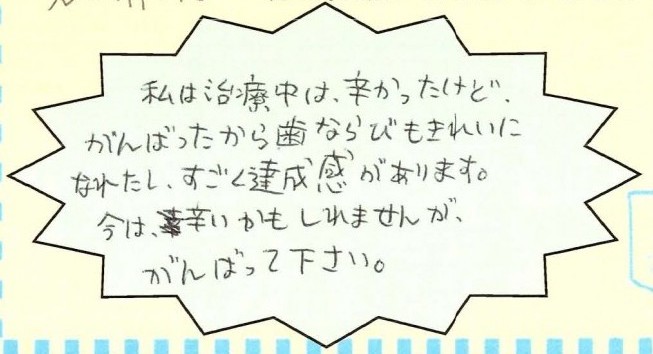 私は治療中は、辛かったけど、
がんばったから歯ならびもきれいに
なれたし、すごく達成感があります。
今は、辛いかもしれませんが、
がんばって下さい。